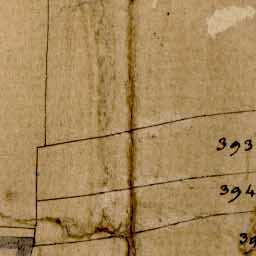 393
394
39